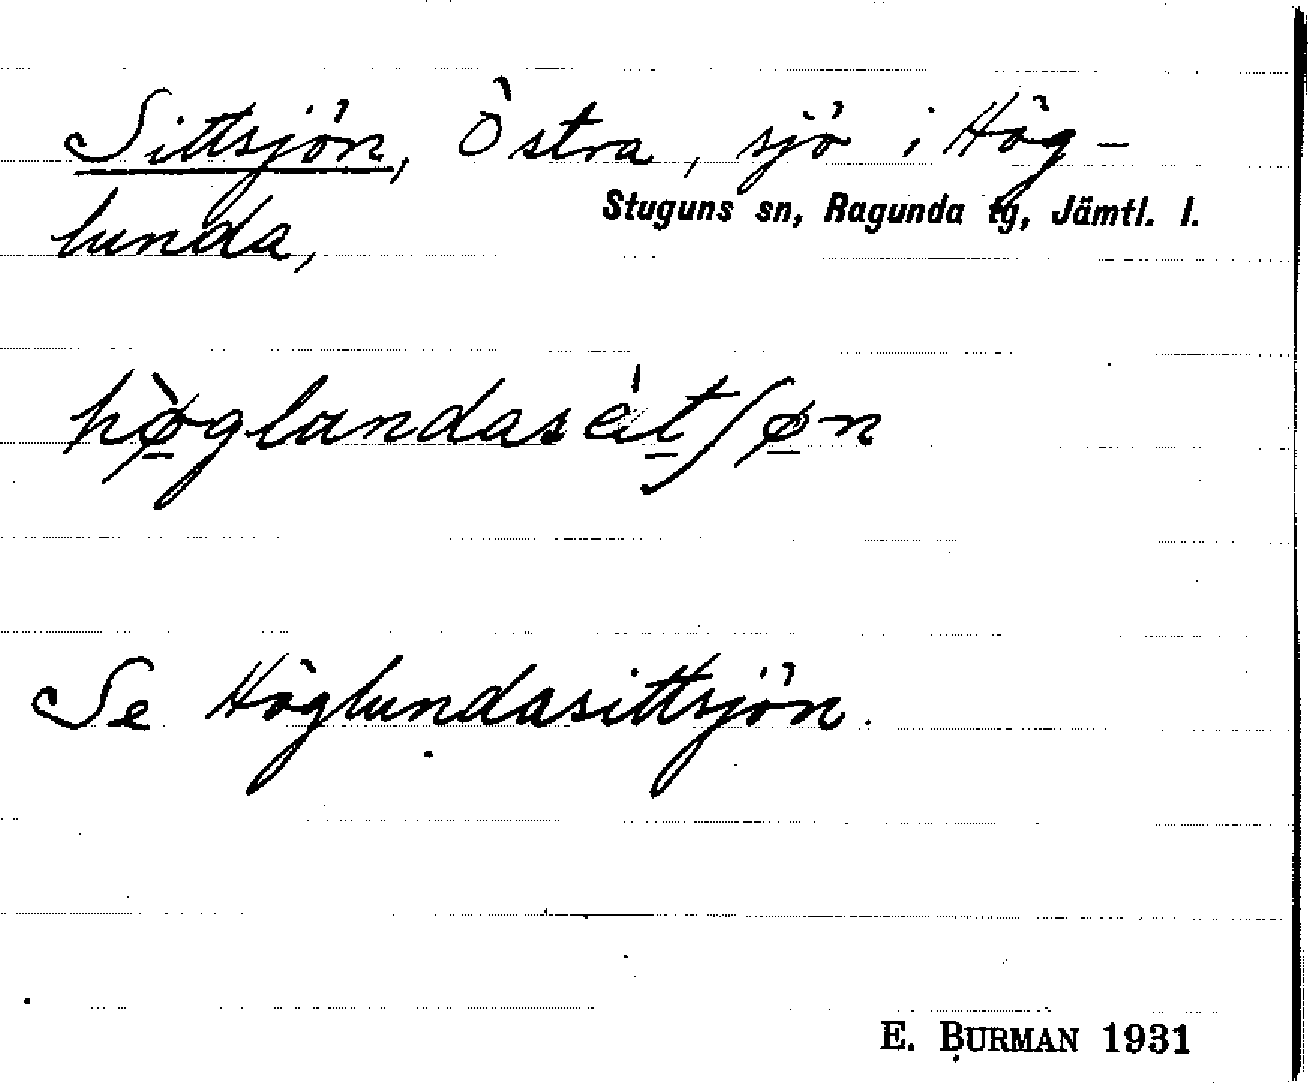 Sittsjön, Östra, sjö i Hög-
lunda,
Stuguns sn, Ragunda tg, Jämtl. l.
hø̀glundasèt∫øn
Se Höglundasittsjön.
E. BURMAN 1931